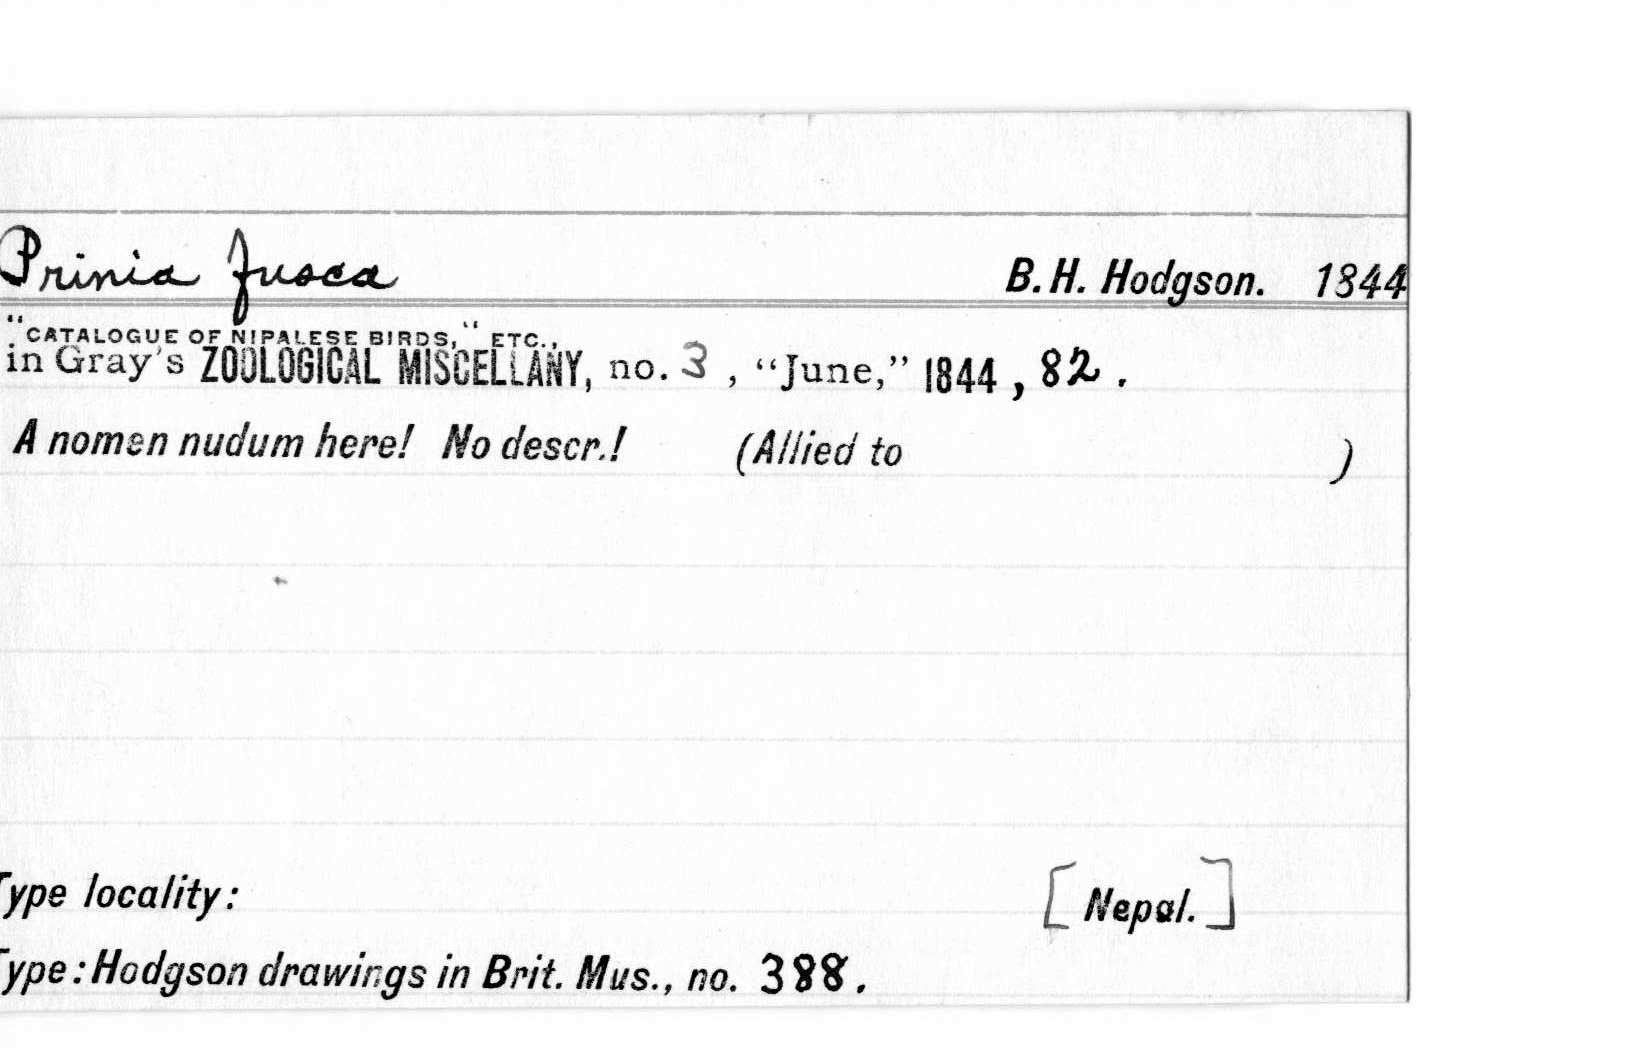 Prinia fusca B. H. Hodgson. 1844
"CATALOGUE OF NIPALESE BIRDS," ETC.,
in Gray's ZOOLOGICAL MISCELLANY, no. 3, "June," 1844, 82.
A nomen nudum here! No descr.! (Allied to )
Type locality: [Nepal.]
Type: Hodgson drawings in Brit. Mus., no. 388.